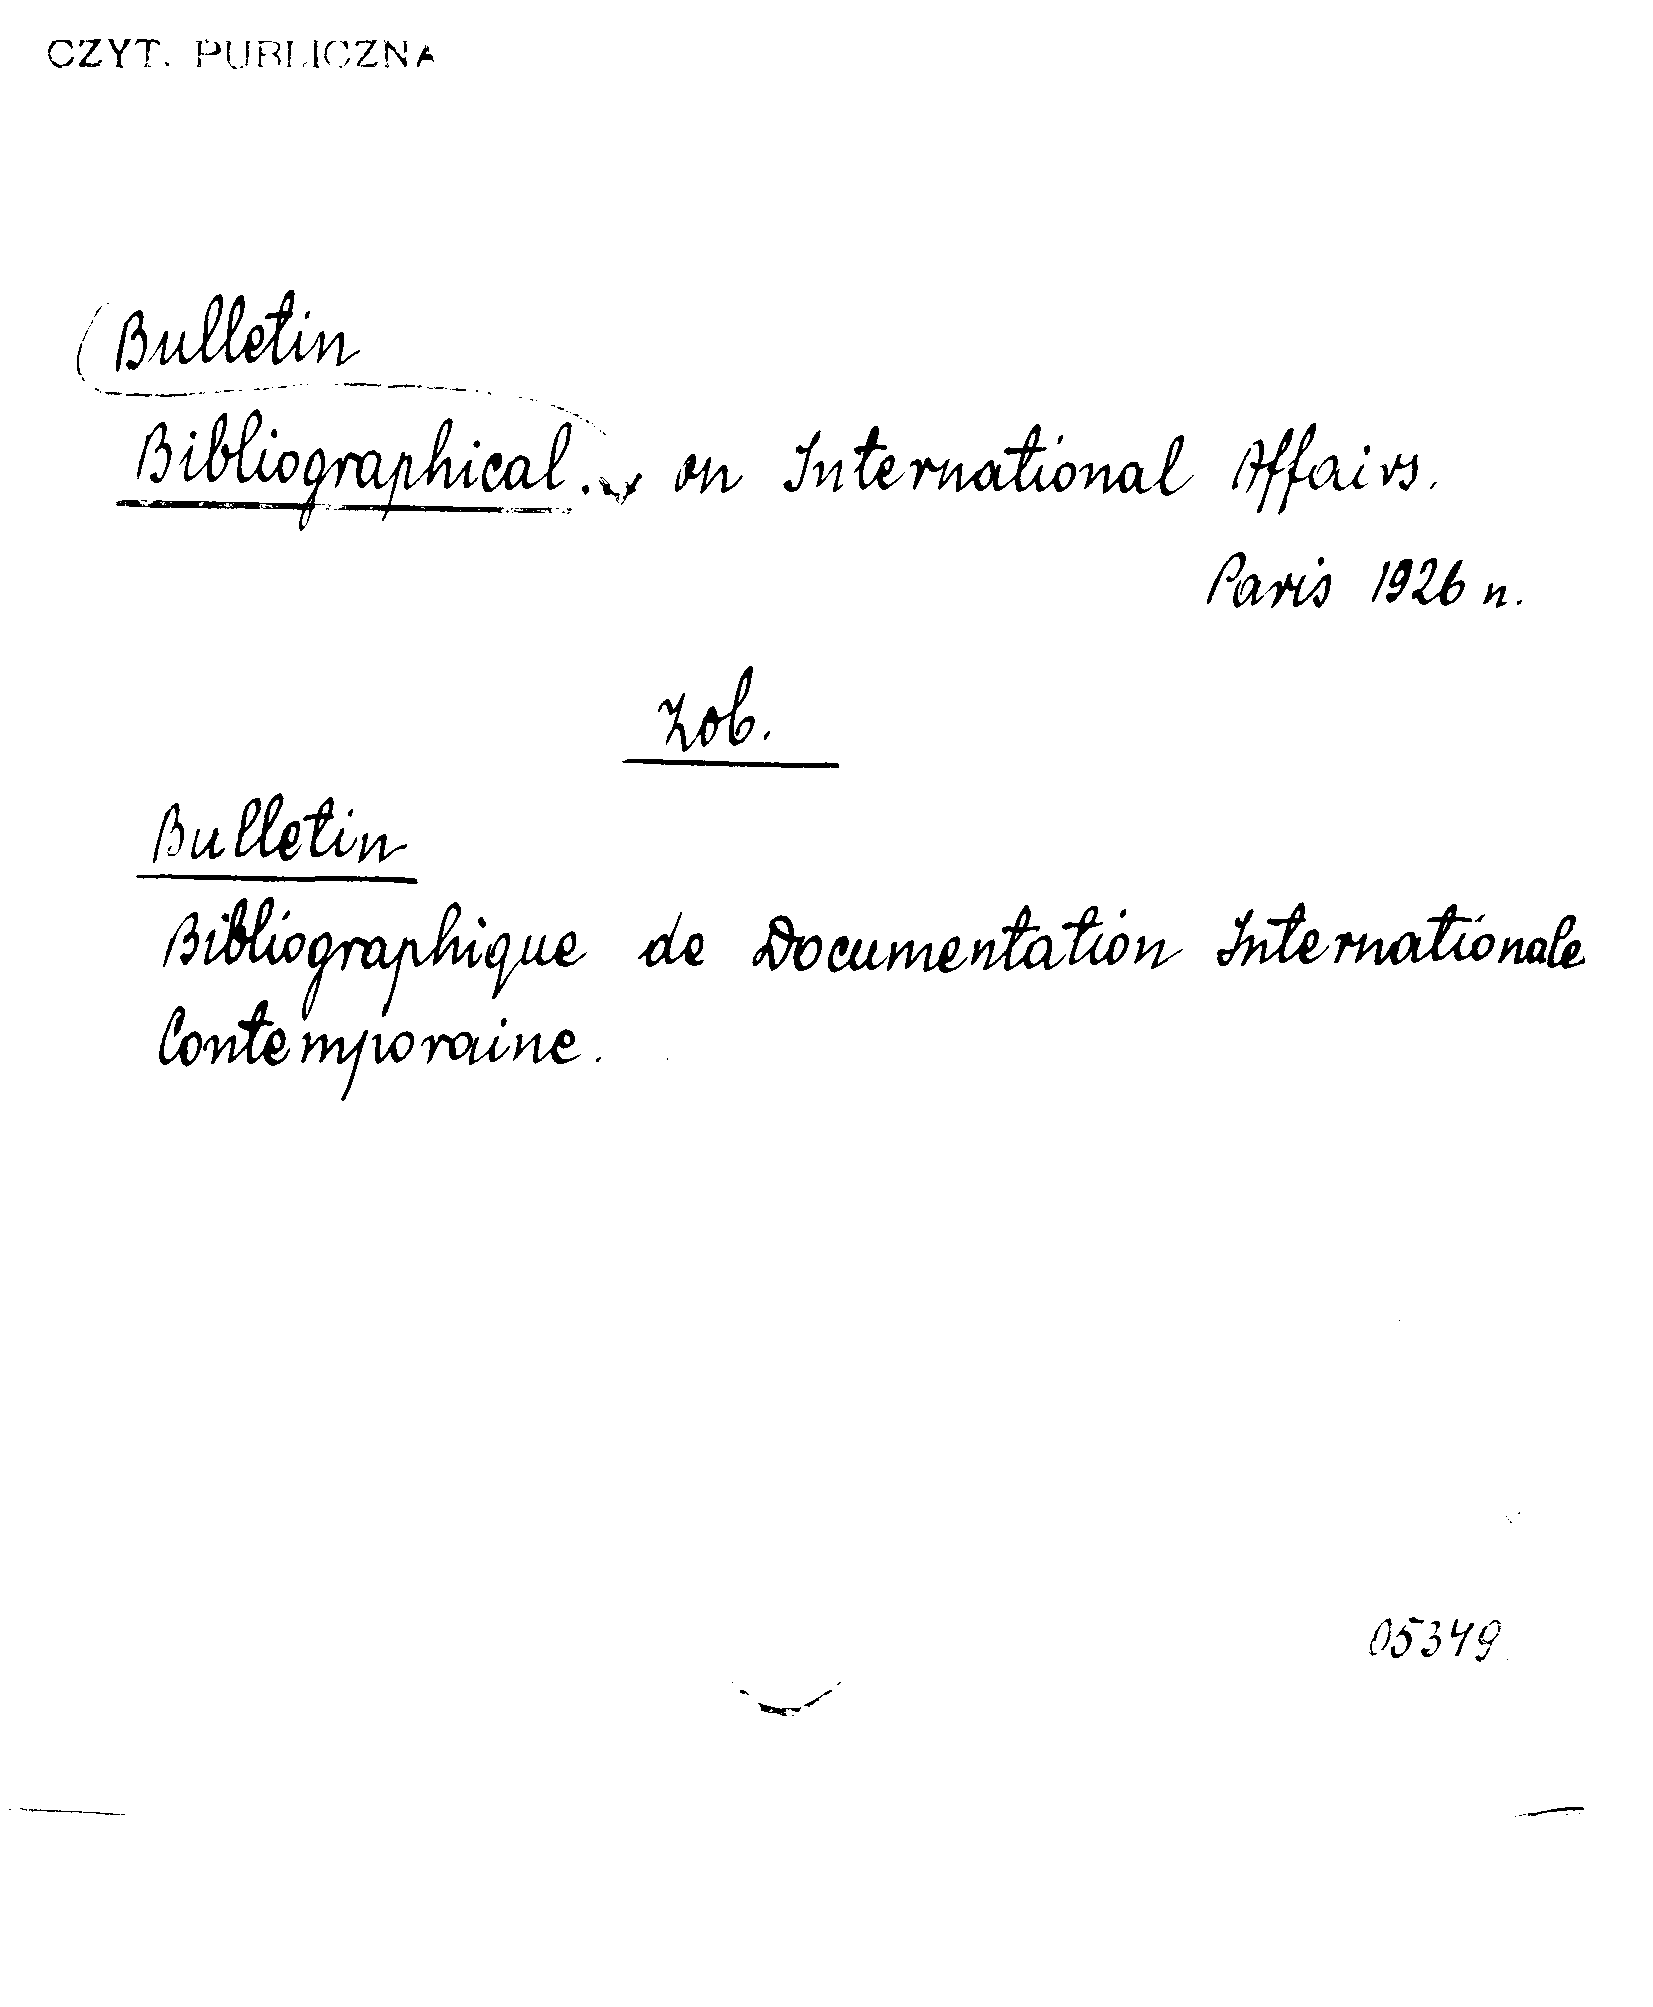 CZYT. PUBLICZNA
Bulletin
Bibliographical. on International Affairs.
Paris 1926 n.
Zob.
Bulletin
Bibliographique de Documentation Internationale
Contemporaine.
05349